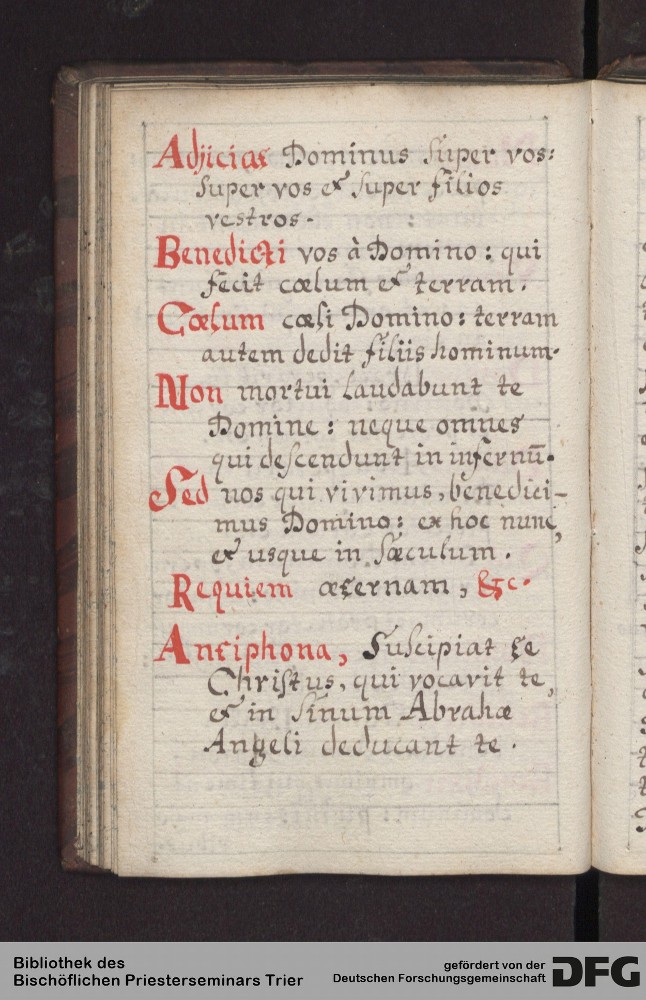 Adjicias Dominus super vos:
super vos & super filios
vestros.
Benedicti vos à Domino: qui
fecit cœlum & terram.
Cœlum cœli Domino: terram
autem dedit filiis hominum.
Non mortui laudabunt te
Domine: neque omnes
qui descendunt in infernū.
Sed nos qui vivimus, benedici-
mus Domino: ex hoc nunc,
& usque in sæculum.
Requiem æternam, &c.
Antiphona, Suscipiat te
Christus, qui vocavit te,
& in sinum Abrahæ
Angeli deducant te.
Bibliothek des
Bischöflichen Priesterseminars Trier
gefördert von der
Deutschen Forschungsgemeinschaft
DFG